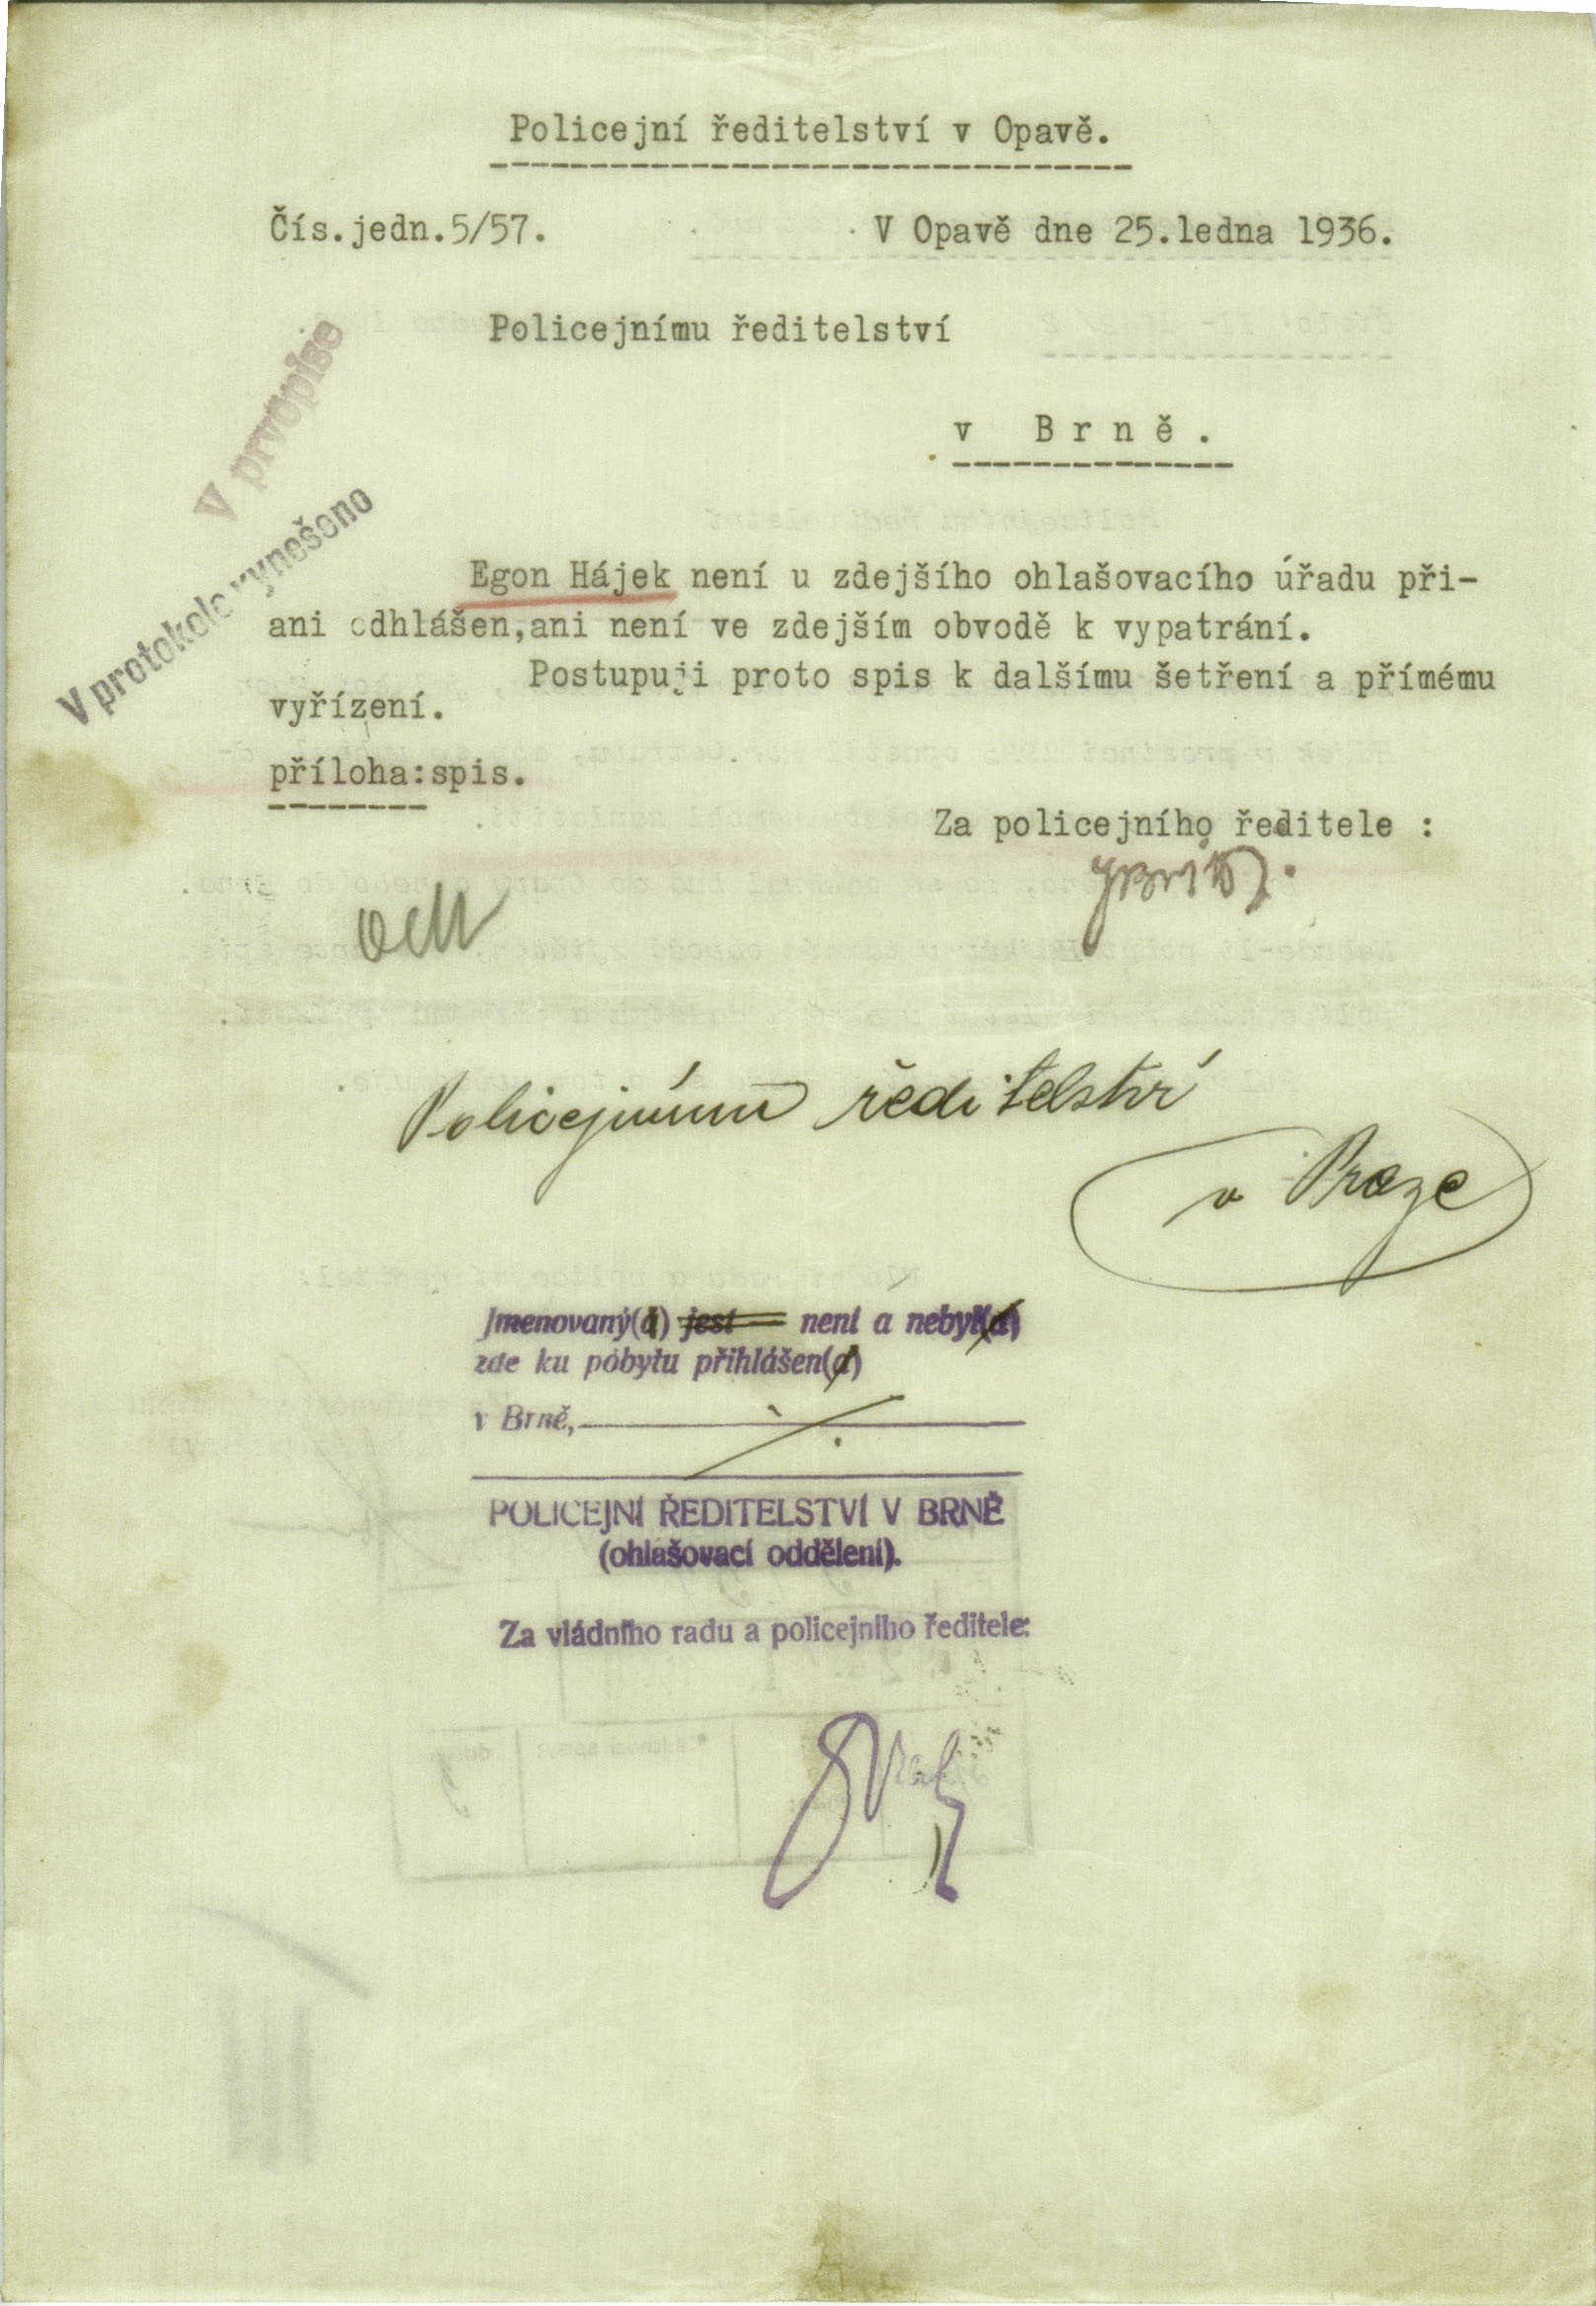 Policejní ředitelství v Opavě.
Čís.jedn.5/57.
V Opavě dne 25.ledna 1936.
Policejnímu ředitelství
v Brně.
V prvopise
V protokole vynešeno
Egon Hájek není u zdejšího ohlašovacího úřadu při-
ani odhlášen,ani není ve zdejším obvodě k vypatrání.
Postupuji proto spis k dalšímu šetření a přímému
vyřízení.
příloha:spis.
Za policejního ředitele :
Policejnímu ředitelství
v Praze
Jmenovaný(á) jest není a nebyl(a)
zde ku pobytu přihlášen(a)
v Brně,
POLICEJNÍ ŘEDITELSTVÍ V BRNĚ
(ohlašovací oddělení).
Za vládního radu a policejního ředitele: